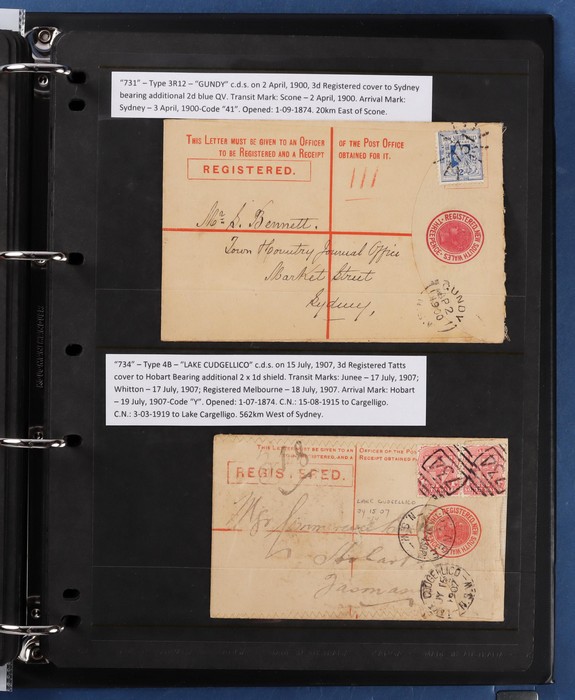 "731" – Type 3R12 – "GUNDY" c.d.s. on 2 April, 1900, 3d Registered cover to Sydney
bearing additional 2d blue QV. Transit Mark: Scone – 2 April, 1900. Arrival Mark:
Sydney – 3 April, 1900-Code "41". Opened: 1-09-1874. 20km East of Scone.
THIS LETTER MUST BE GIVEN TO AN OFFICER OF THE POST OFFICE
TO BE REGISTERED AND A RECEIPT OBTAINED FOR IT.
REGISTERED.
Mr. L. Bennett.
Town & Country Journal Office
Market Street
Sydney,
REGISTERED NEW SOUTH WALES THREEPENCE
GUNDY
AP 2
1900
"734" – Type 4B – "LAKE CUDGELLICO" c.d.s. on 15 July, 1907, 3d Registered Tatts
cover to Hobart Bearing additional 2 x 1d shield. Transit Marks: Junee – 17 July, 1907;
Whitton – 17 July, 1907; Registered Melbourne – 18 July, 1907. Arrival Mark: Hobart
– 19 July, 1907-Code "Y". Opened: 1-07-1874. C.N.: 15-08-1915 to Cargelligo.
C.N.: 3-03-1919 to Lake Cargelligo. 562km West of Sydney.
THIS LETTER MUST BE GIVEN TO AN OFFICER OF THE POST
REGISTERED, AND A RECEIPT OBTAINED
REGISTERED.
LAKE CUDGELLICO
Hobart
Tasmania
CUDGELLICO N.S.W
JY 15
1907